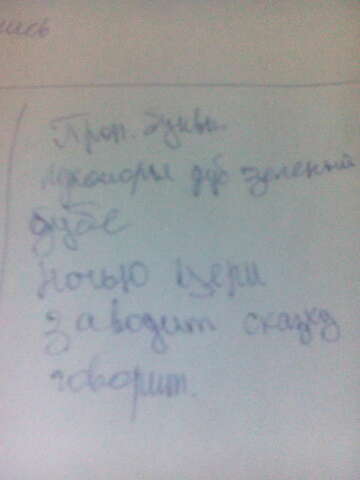 ись
Проп. буквы.
лукоморья дуб зеленый
дубе
ночью цепи
заводит сказку
говорит.